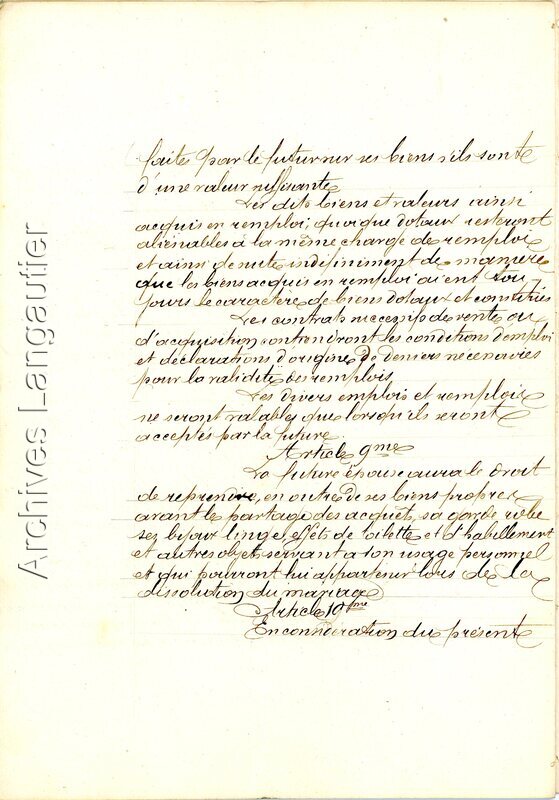 faites par le futur sur ses biens s'ils sont
d'une valeur suffisante
Les dits biens et valeurs ainsi
acquis en remploi, quoique dotaux resteront
aliénables à la même charge de remploi
et ainsi de suite indéfiniment de manière
que les biens acquis en remploi aient tou
jours le caractère de biens dotaux et constitués
Les contrats successifs de vente ou
d'acquisition contiendront les conditions d'emploi
et déclarations d'origine de deniers nécessaires
pour la validité des remplois
Les divers emplois et remplois
ne seront valables que lorsqu'ils seront
acceptés par la future.
Article 9me
La future épouse aura le droit
de reprendre, en outre de ses biens propres
avant le partage des acquêts, sa garde robe
ses bijoux linge, effets de toilette et d'habillement
et autres objets servant à son usage personnel
et qui pourront lui appartenir lors de la
dissolution du mariage
Article 10me
En considération du présent
Archives Langautier